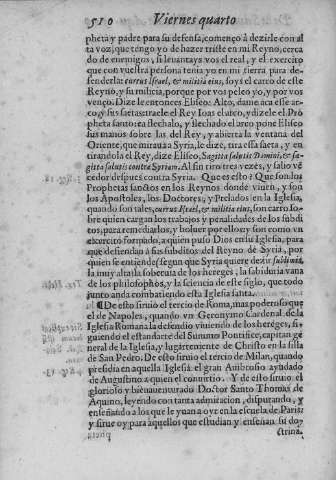 510 Viernes quarto
pheta y padre para su defensa, començo à dezirle con al
ta voz, que tengo yo de hazer triste en mi Reyno, cerca
do de enemigos, si leuantays vos el real, y el exercito
que con vuestra persona tenia yo en mi tierra para de-
fenderla: currus Israel, & militia eius, soys el carro de este
Reyno, y su milicia, porque por vos peleo yo, y por vos
venço. Dize le entonces Eliseo: Alto, dame acà esse ar-
co, y sus saetas: trae le el Rey los el arco, y dize le el Pro
pheta santo: ea flechalo, y flechado el arco pone Eliseo
sus manos sobre las del Rey, y abierta la ventana del
Oriente, que miraua à Syria, le dize, tira essa saeta, y en
tirandola el Rey, dize Eliseo, Sagitta salutis Domini, & sa-
gitta salutis contra Syriam. Al fin tiro tres vezes, y salio vẽ
cedor despues contra Syria. Que es esto? Que son los
Prophetas sanctos en los Reynos donde viuen, y son
los Apostoles, los Doctores, y Prelados en la Iglesia,
quando son tales, currus Israel, & militia eius, son carro so-
bre quien cargan los trabajos y penalidades de los subdi
tos, para remediarlos, y boluer por ellos: y son como vn
exercito formado, a quien puso Dios en su Iglesia, para
que defiendan à sus subditos del Reyno de Syria, por
quien se entiende (segun que Syria quiere dezir sublimis,
la muy alta) la soberuia de los hereges, la sabiduria vana
de los philosophos, y la sciencia de este siglo, que todo
junto anda combatiendo esta Iglesia santa.
¶ De esto siruio el tercio de Roma, mas poderoso que
el de Napoles, quando vn Geronymo Cardenal de la
Iglesia Romana la defendio viuiendo de los hereges, si-
guiendo el estandarte del Summo Pontifice, capitan ge
neral de la Iglesia, y lugarteniente de Christo en la silla
de San Pedro. De esto siruio el tercio de Milan, quando
presidia en aquella Iglesia el gran Ambrosio ayudado
de Augustino a quien el conuirtio. Y de esto siruio el
glorioso y bienauenturado Doctor Santo Thomas de
Aquino, leyendo con tanta admiracion, disputando, y
enseñando a los que le yuan a oyr en la escuela de Paris:
y sirue oy para aquellos que estudian y enseñan su do-
ctrina.